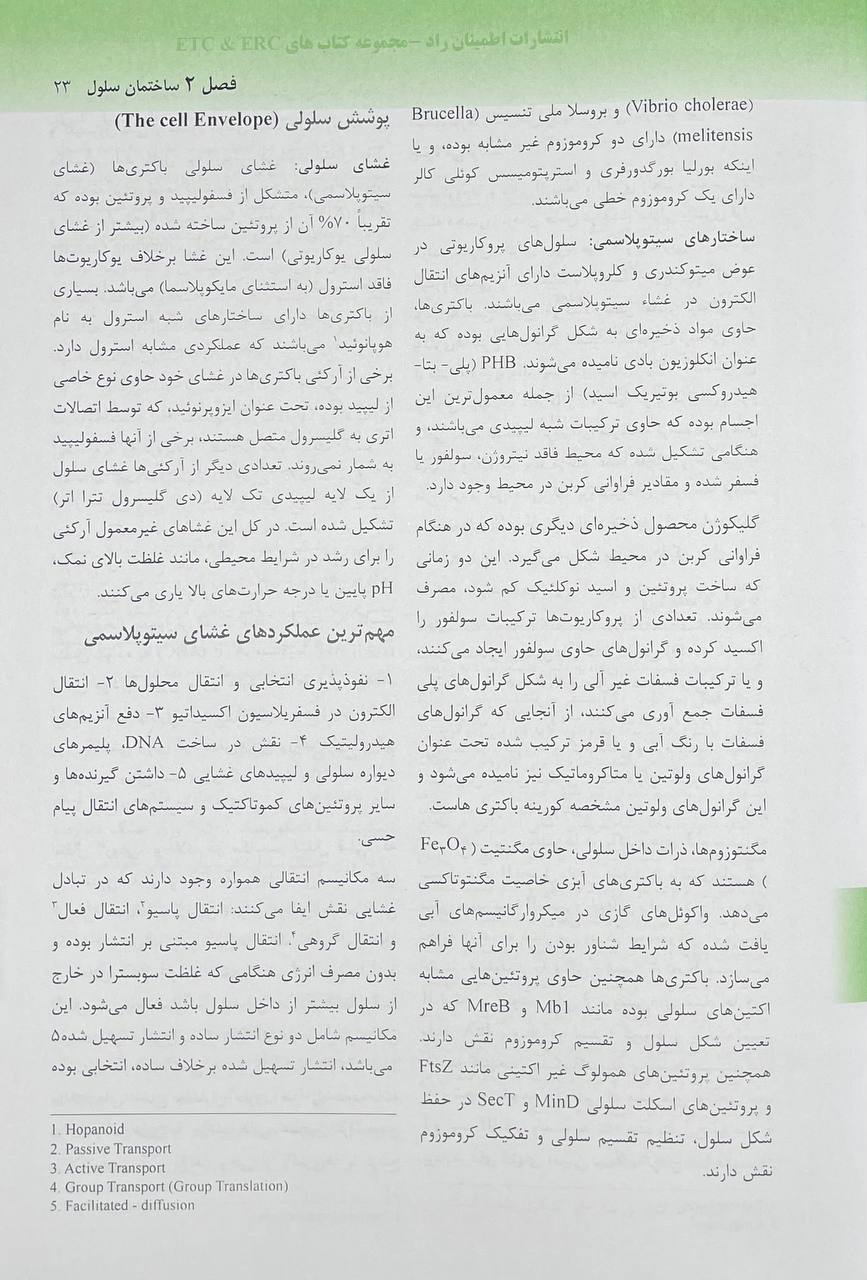 انتشارات اطمینان راد –مجموعه کتاب های ETC & ERC
فصل ۲ ساختمان سلول ۲۳
(Vibrio cholerae) و بروسلا ملی تنسیس (Brucella
melitensis) دارای دو کروموزوم غیر مشابه بوده، و یا
اینکه بورلیا بورگدورفری و استرپتومیسس کوئلی کالر
دارای یک کروموزوم خطی می‌باشند.
ساختارهای سیتوپلاسمی: سلول‌های پروکاریوتی در
عوض میتوکندری و کلروپلاست دارای آنزیم‌های انتقال
الکترون در غشاء سیتوپلاسمی می‌باشند. باکتری‌ها،
حاوی مواد ذخیره‌ای به شکل گرانول‌هایی بوده که به
عنوان انکلوزیون بادی نامیده می‌شوند. PHB (پلی- بتا-
هیدروکسی بوتیریک اسید) از جمله معمول‌ترین این
اجسام بوده که حاوی ترکیبات شبه لیپیدی می‌باشند، و
هنگامی تشکیل شده که محیط فاقد نیتروژن، سولفور یا
فسفر شده و مقادیر فراوانی کربن در محیط وجود دارد.
گلیکوژن محصول ذخیره‌ای دیگری بوده که در هنگام
فراوانی کربن در محیط شکل می‌گیرد. این دو زمانی
که ساخت پروتئین و اسید نوکلئیک کم شود، مصرف
می‌شوند. تعدادی از پروکاریوت‌ها ترکیبات سولفور را
اکسید کرده و گرانول‌های حاوی سولفور ایجاد می‌کنند،
و یا ترکیبات فسفات غیر آلی را به شکل گرانول‌های پلی
فسفات جمع آوری می‌کنند، از آنجایی که گرانول‌های
فسفات با رنگ آبی و یا قرمز ترکیب شده تحت عنوان
گرانول‌های ولوتین یا متاکروماتیک نیز نامیده می‌شود و
این گرانول‌های ولوتین مشخصه کورینه باکتری هاست.
مگنتوزوم‌ها، ذرات داخل سلولی، حاوی مگنتیت (Fe₃O₄
) هستند که به باکتری‌های آبزی خاصیت مگنتوتاکسی
می‌دهد. واکوئل‌های گازی در میکروارگانیسم‌های آبی
یافت شده که شرایط شناور بودن را برای آنها فراهم
می‌سازد. باکتری‌ها همچنین حاوی پروتئین‌هایی مشابه
اکتین‌های سلولی بوده مانند Mb1 و MreB که در
تعیین شکل سلول و تقسیم کروموزوم نقش دارند.
همچنین پروتئین‌های همولوگ غیر اکتینی مانند FtsZ
و پروتئین‌های اسکلت سلولی MinD و SecT در حفظ
شکل سلول، تنظیم تقسیم سلولی و تفکیک کروموزوم
نقش دارند.
پوشش سلولی (The cell Envelope)
غشای سلولی: غشای سلولی باکتری‌ها (غشای
سیتوپلاسمی)، متشکل از فسفولیپید و پروتئین بوده که
تقریباً ۷۰% آن از پروتئین ساخته شده (بیشتر از غشای
سلولی یوکاریوتی) است. این غشا برخلاف یوکاریوت‌ها
فاقد استرول (به استثنای مایکوپلاسما) می‌باشد. بسیاری
از باکتری‌ها دارای ساختارهای شبه استرول به نام
هوپانوئید¹ می‌باشند که عملکردی مشابه استرول دارد.
برخی از آرکئی باکتری‌ها در غشای خود حاوی نوع خاصی
از لیپید بوده، تحت عنوان ایزوپرنوئید، که توسط اتصالات
اتری به گلیسرول متصل هستند، برخی از آنها فسفولیپید
به شمار نمی‌روند. تعدادی دیگر از آرکئی‌ها غشای سلول
از یک لایه لیپیدی تک لایه (دی گلیسرول تترا اتر)
تشکیل شده است. در کل این غشاهای غیرمعمول آرکئی
را برای رشد در شرایط محیطی، مانند غلظت بالای نمک،
pH پایین یا درجه حرارت‌های بالا یاری می‌کنند.
مهم‌ترین عملکردهای غشای سیتوپلاسمی
۱- نفوذپذیری انتخابی و انتقال محلول‌ها ۲- انتقال
الکترون در فسفریلاسیون اکسیداتیو ۳- دفع آنزیم‌های
هیدرولیتیک ۴- نقش در ساخت DNA، پلیمرهای
دیواره سلولی و لیپیدهای غشایی ۵- داشتن گیرنده‌ها و
سایر پروتئین‌های کموتاکتیک و سیستم‌های انتقال پیام
حسی.
سه مکانیسم انتقالی همواره وجود دارند که در تبادل
غشایی نقش ایفا می‌کنند: انتقال پاسیو²، انتقال فعال³
و انتقال گروهی⁴. انتقال پاسیو مبتنی بر انتشار بوده و
بدون مصرف انرژی هنگامی که غلظت سوبسترا در خارج
از سلول بیشتر از داخل سلول باشد فعال می‌شود. این
مکانیسم شامل دو نوع انتشار ساده و انتشار تسهیل شده۵
می‌باشد، انتشار تسهیل شده برخلاف ساده، انتخابی بوده
1. Hopanoid
2. Passive Transport
3. Active Transport
4. Group Transport (Group Translation)
5. Facilitated - diffusion